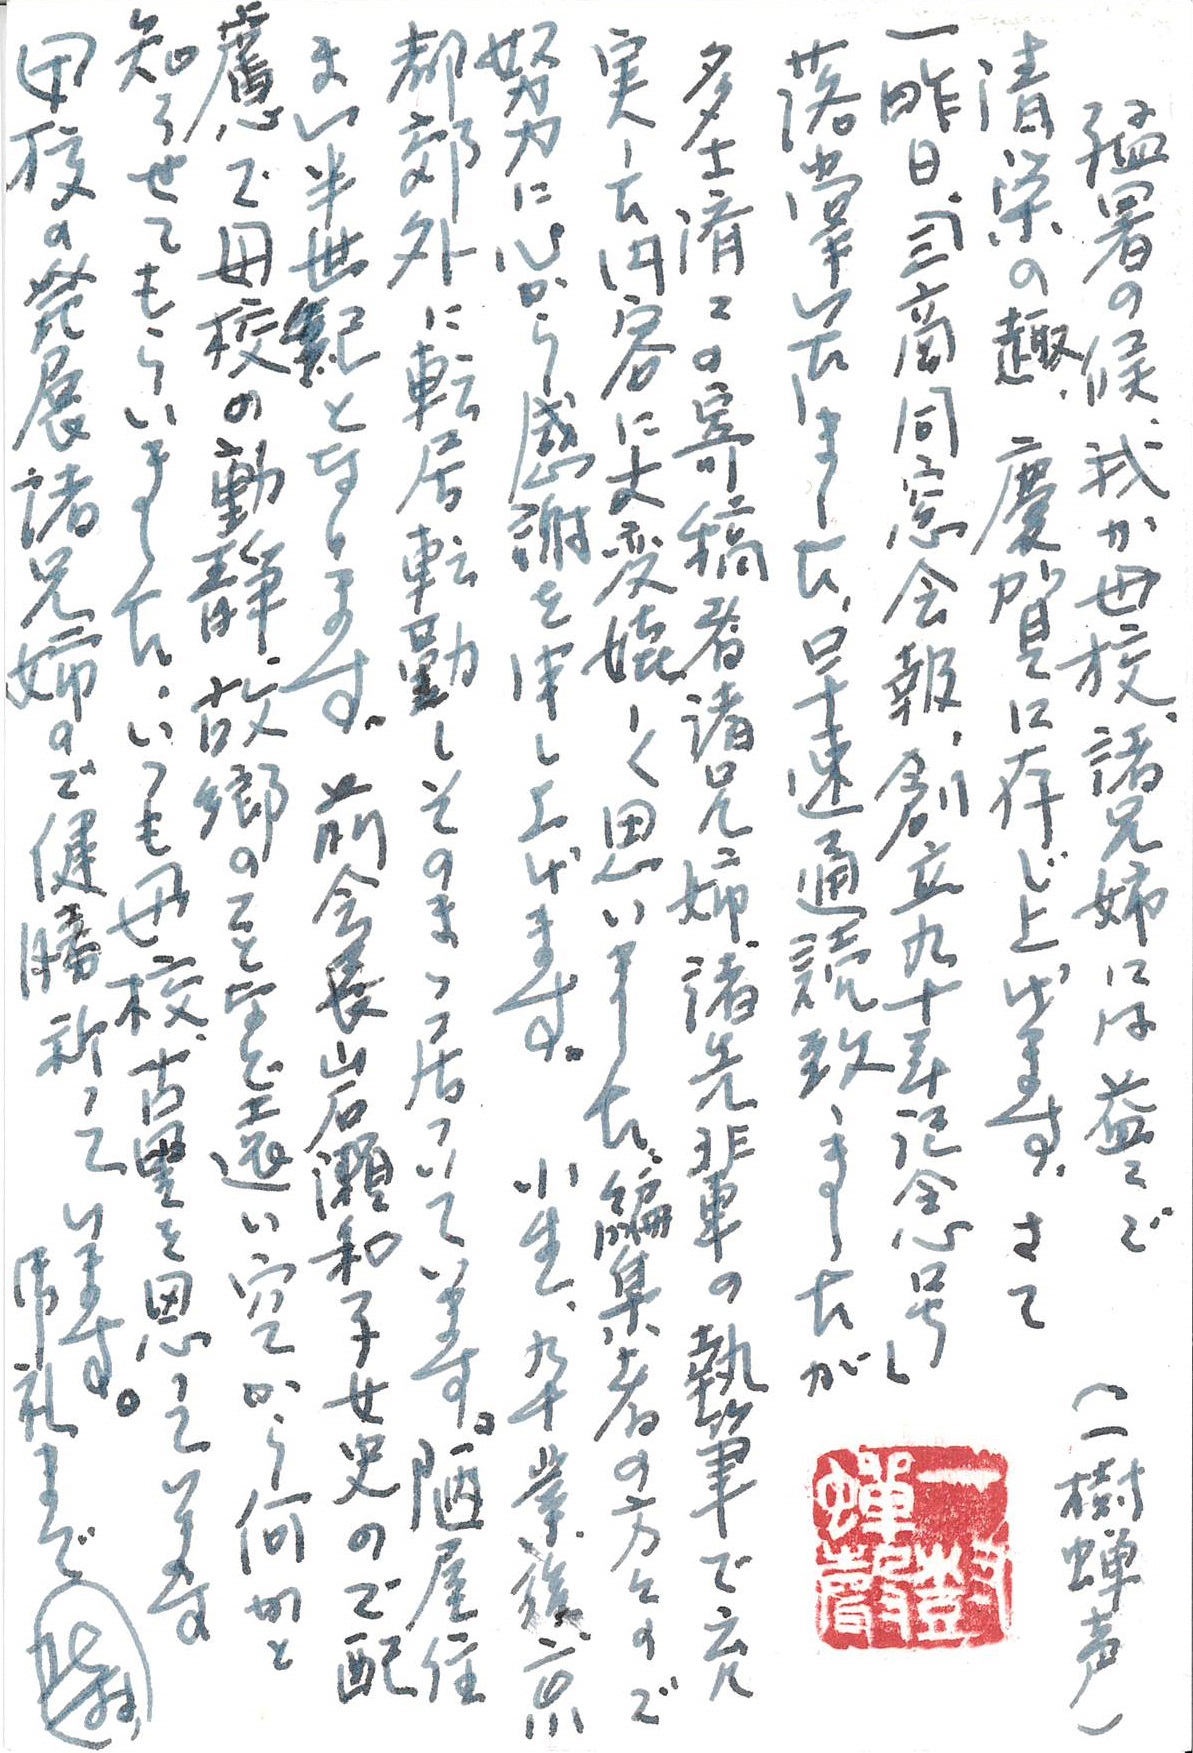 猛暑の候、我が母校、諸兄姉には益々ご
清栄の趣、慶賀に存じ上げます。さて
一昨日、司商同窓会報、創立九十年記念号し
落掌いたしました、早速通読致しましたが
多士済々の寄稿者諸兄姉、諸先輩の執筆で充
実した内容に大変嬉しく思いました。編集者の方々のご
努力に心から感謝を申し上げます。 小生、卒業後、京
都郊外に転居転勤しそのまゝ居ついています。陋屋住
まい半世紀となります。 前会長山岩瀬和子女史のご配
慮で母校の動静、故郷のことなど遠い空から何かと
知らせてもらいました。いつも母校、古里を思っています
母校の発展諸兄姉のご健勝祈っています。 御礼まで
(一樹蝉声)
一樹蝉声